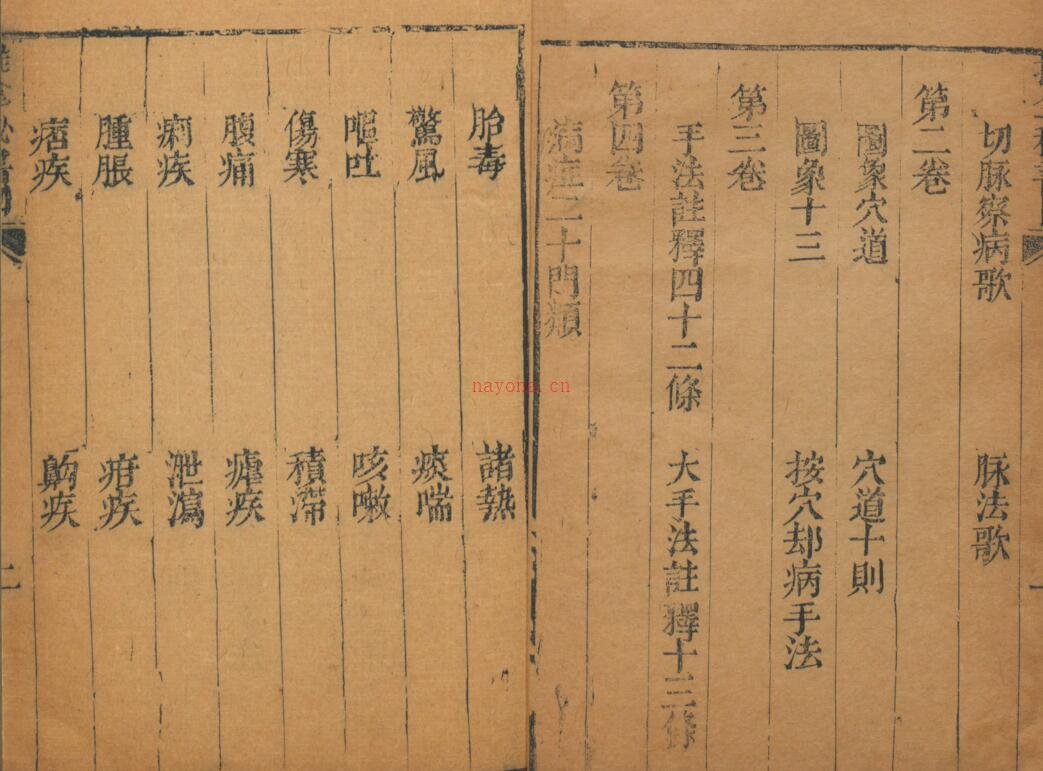 切脉察病歌 脉法歌
第二卷
圖象穴道 穴道十則
圖象十三 按穴却病手法
第三卷
手法註釋四十二條 大手法註釋十三條
第四卷
病症二十門類
胎毒 諸熱
驚風 痰喘
嘔吐 咳嗽
傷寒 積滯
腹痛 瘧疾
痢疾 泄瀉
腫脹 疳疾
痞疾 齁疾
二
nayona.cn